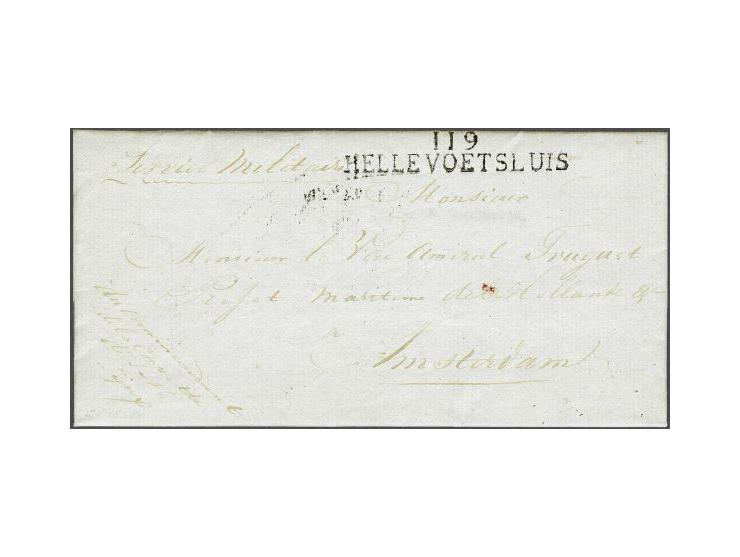 119
HELLEVOETSLUIS
Service Militaire
Monsieur
Monsieur le Vice Amiral Truguet
Prefet maritime de la Hollande &c
a Amsterdam